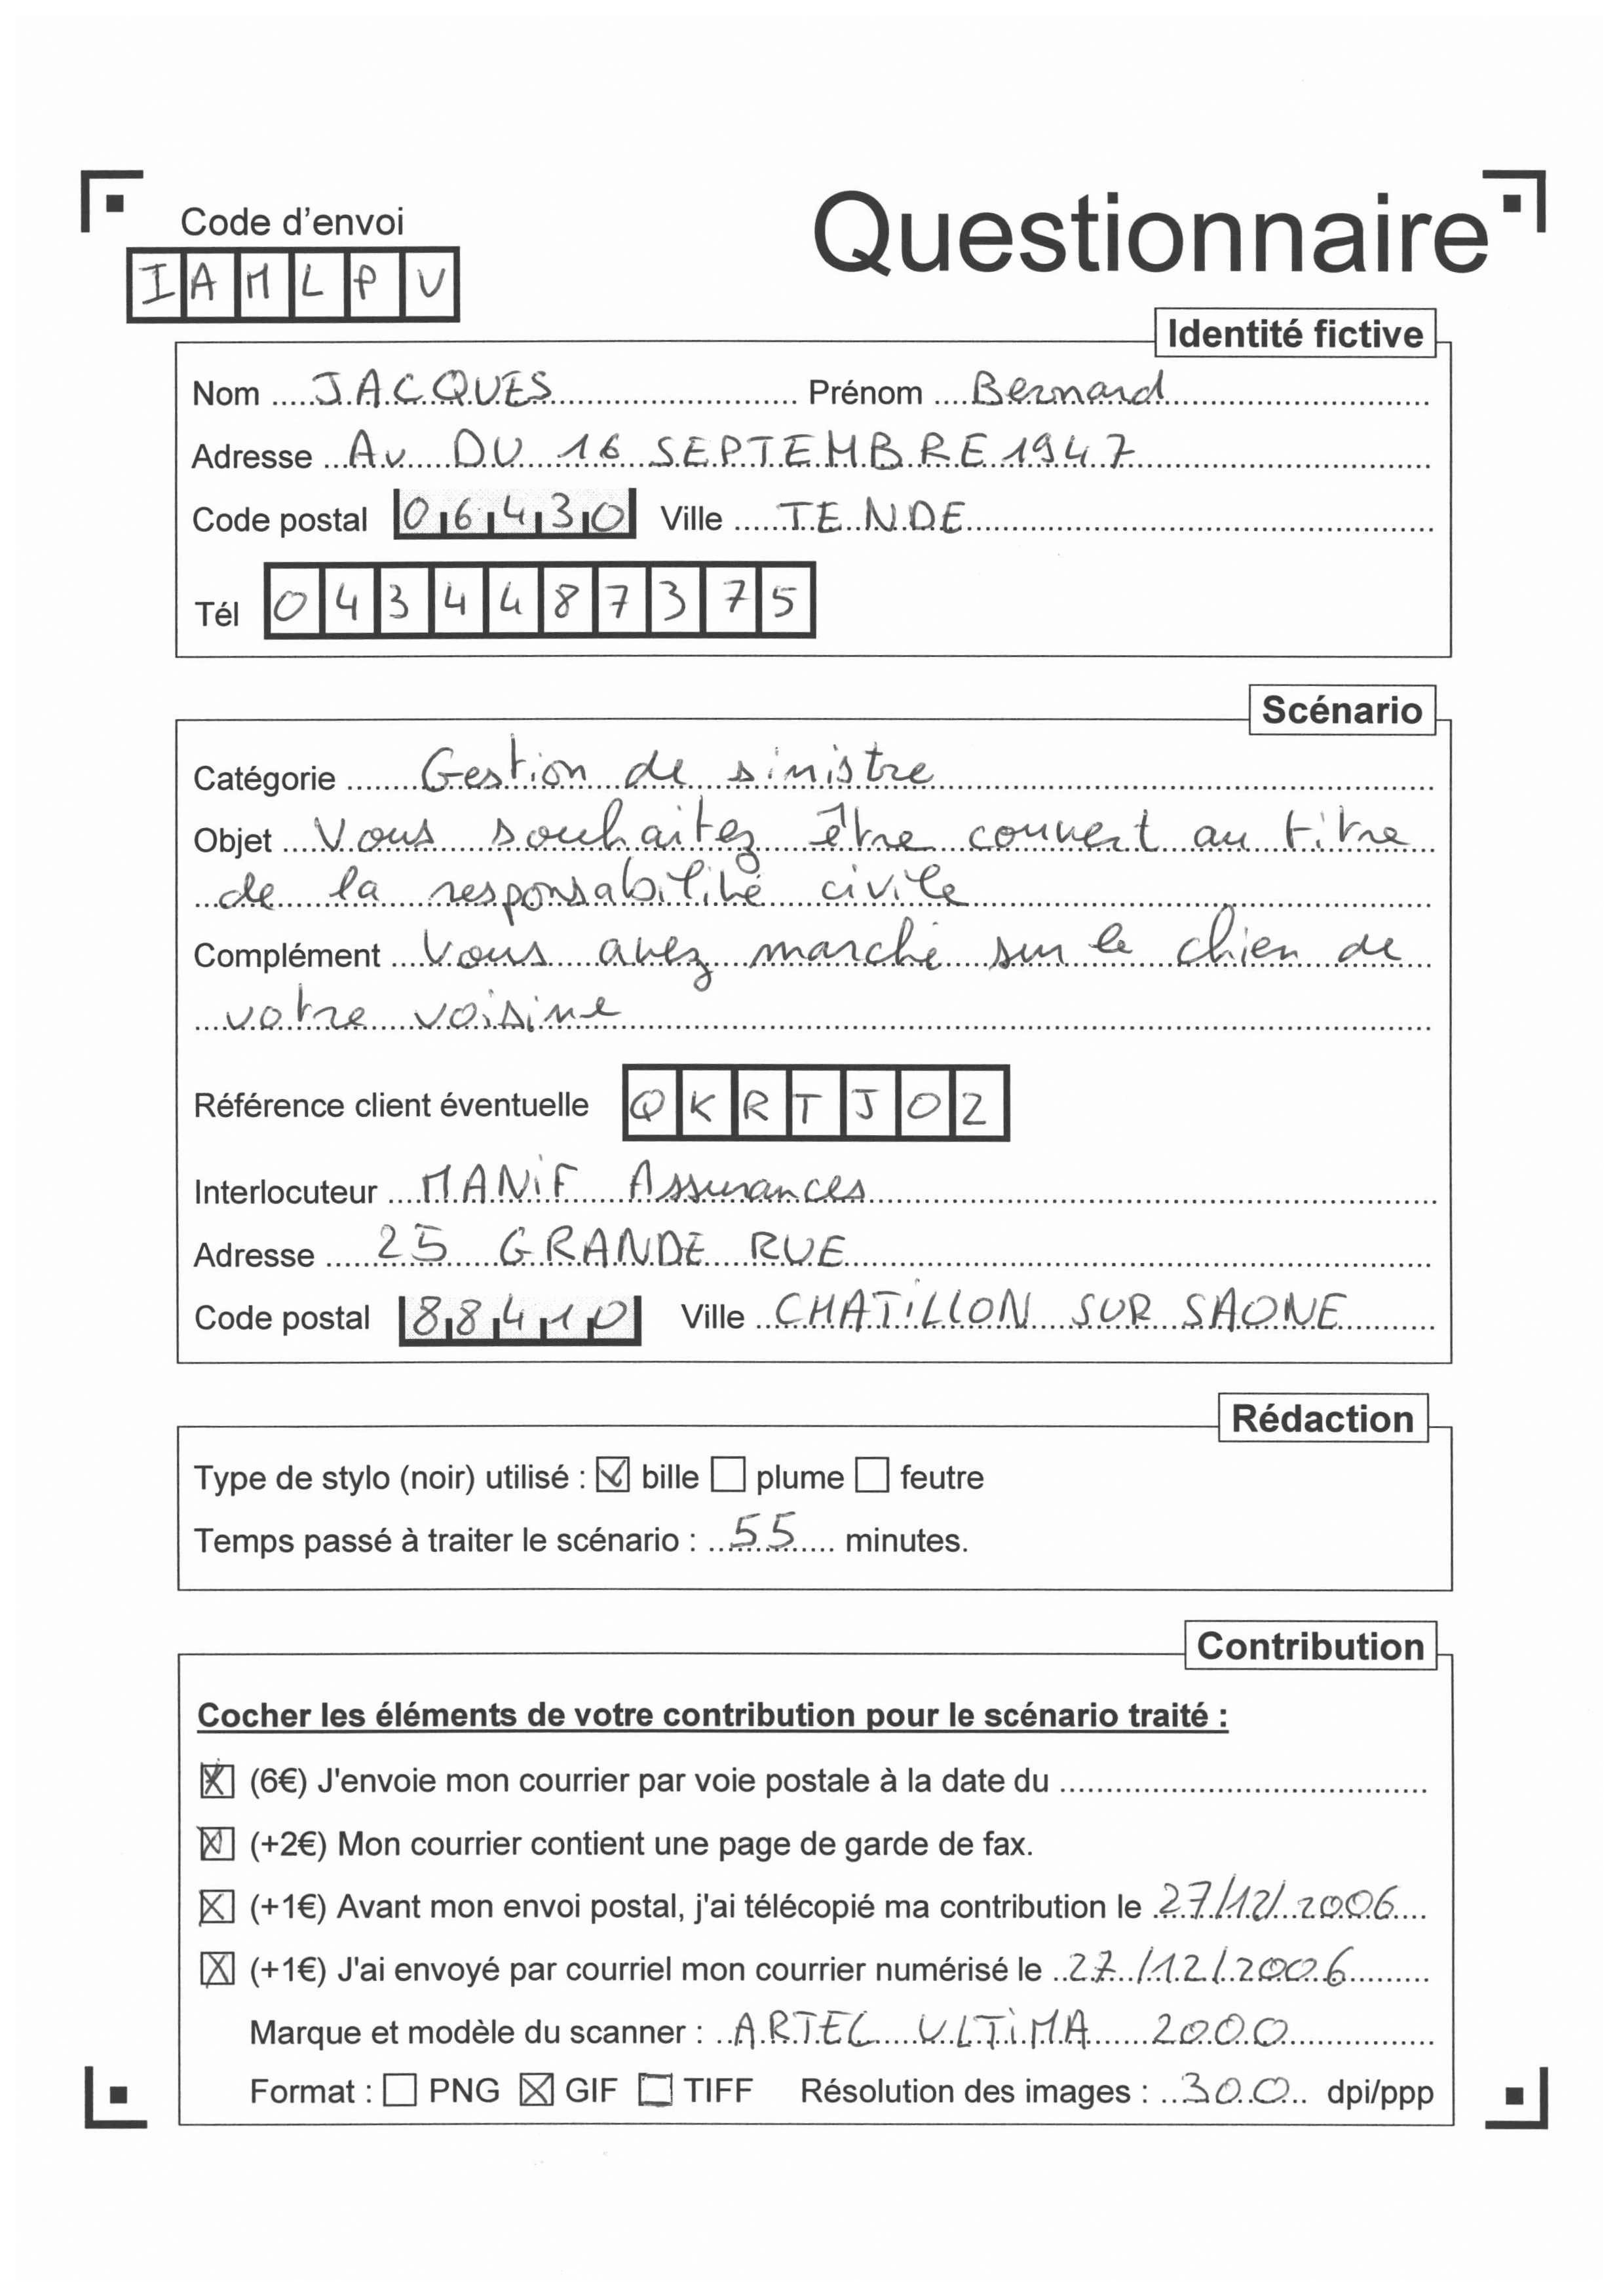 Code d'envoi
Questionnaire
I A M L P V
Identité fictive
Nom JACQUES Prénom Bernard
Adresse Av DU 16 SEPTEMBRE 1947
Code postal 06430 Ville TENDE
Tél 0434487375
Scénario
Catégorie Gestion de sinistre
Objet Vous souhaitez être couvert au titre
de la responsabilité civile
Complément Vous avez marché sur le chien de
votre voisine
Référence client éventuelle QKRTJ02
Interlocuteur MANiF Assurances
Adresse 25 GRANDE RUE
Code postal 88410 Ville CHATiLLON SUR SAONE
Rédaction
Type de stylo (noir) utilisé : ☑ bille ☐ plume ☐ feutre
Temps passé à traiter le scénario : 55 minutes.
Contribution
Cocher les éléments de votre contribution pour le scénario traité :
☒ (6€) J'envoie mon courrier par voie postale à la date du
☒ (+2€) Mon courrier contient une page de garde de fax.
☒ (+1€) Avant mon envoi postal, j'ai télécopié ma contribution le 27/12/2006
☒ (+1€) J'ai envoyé par courriel mon courrier numérisé le 27/12/2006
Marque et modèle du scanner : ARTEC ULTiMA 2000
Format : ☐ PNG ☒ GIF ☐ TIFF Résolution des images : 300 dpi/ppp